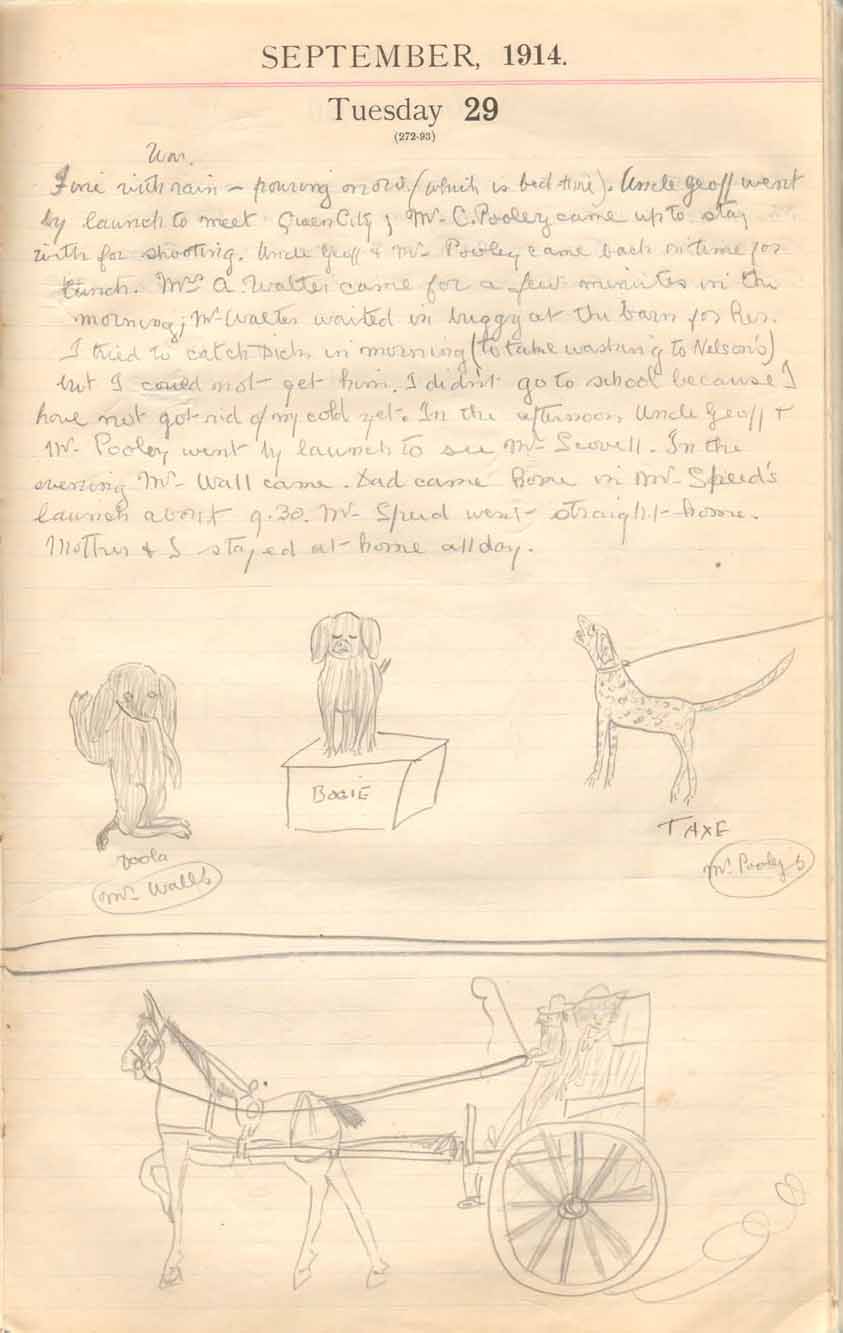 SEPTEMBER, 1914.
Tuesday 29
(272-93)
War.
Fine with rain - pouring now (which is bed time). Uncle Geoff went
by launch to meet Queen City; Mr. C. Pooley came up to stay
with for shooting. Uncle Geoff & Mr. Pooley came back in time for
lunch. Mrs A. Walter came for a few minutes in the
morning; Mr Walter waited in buggy at the barn for her.
I tried to catch Dick in morning (to take washing to Nelson's)
but I could not get him. I didn't go to school because I
have not got rid of my cold yet. In the afternoon Uncle Geoff +
Mr. Pooley went by launch to see Mr Scovell. In the
evening Mr. Wall came. Dad came home in Mr. Speed's
launch about 9.30. Mr. Speed went straight home.
Mother & I stayed at home all day.
BOGIE
TAXE
Doola
Mr. Pooley's
Mr. Wall's